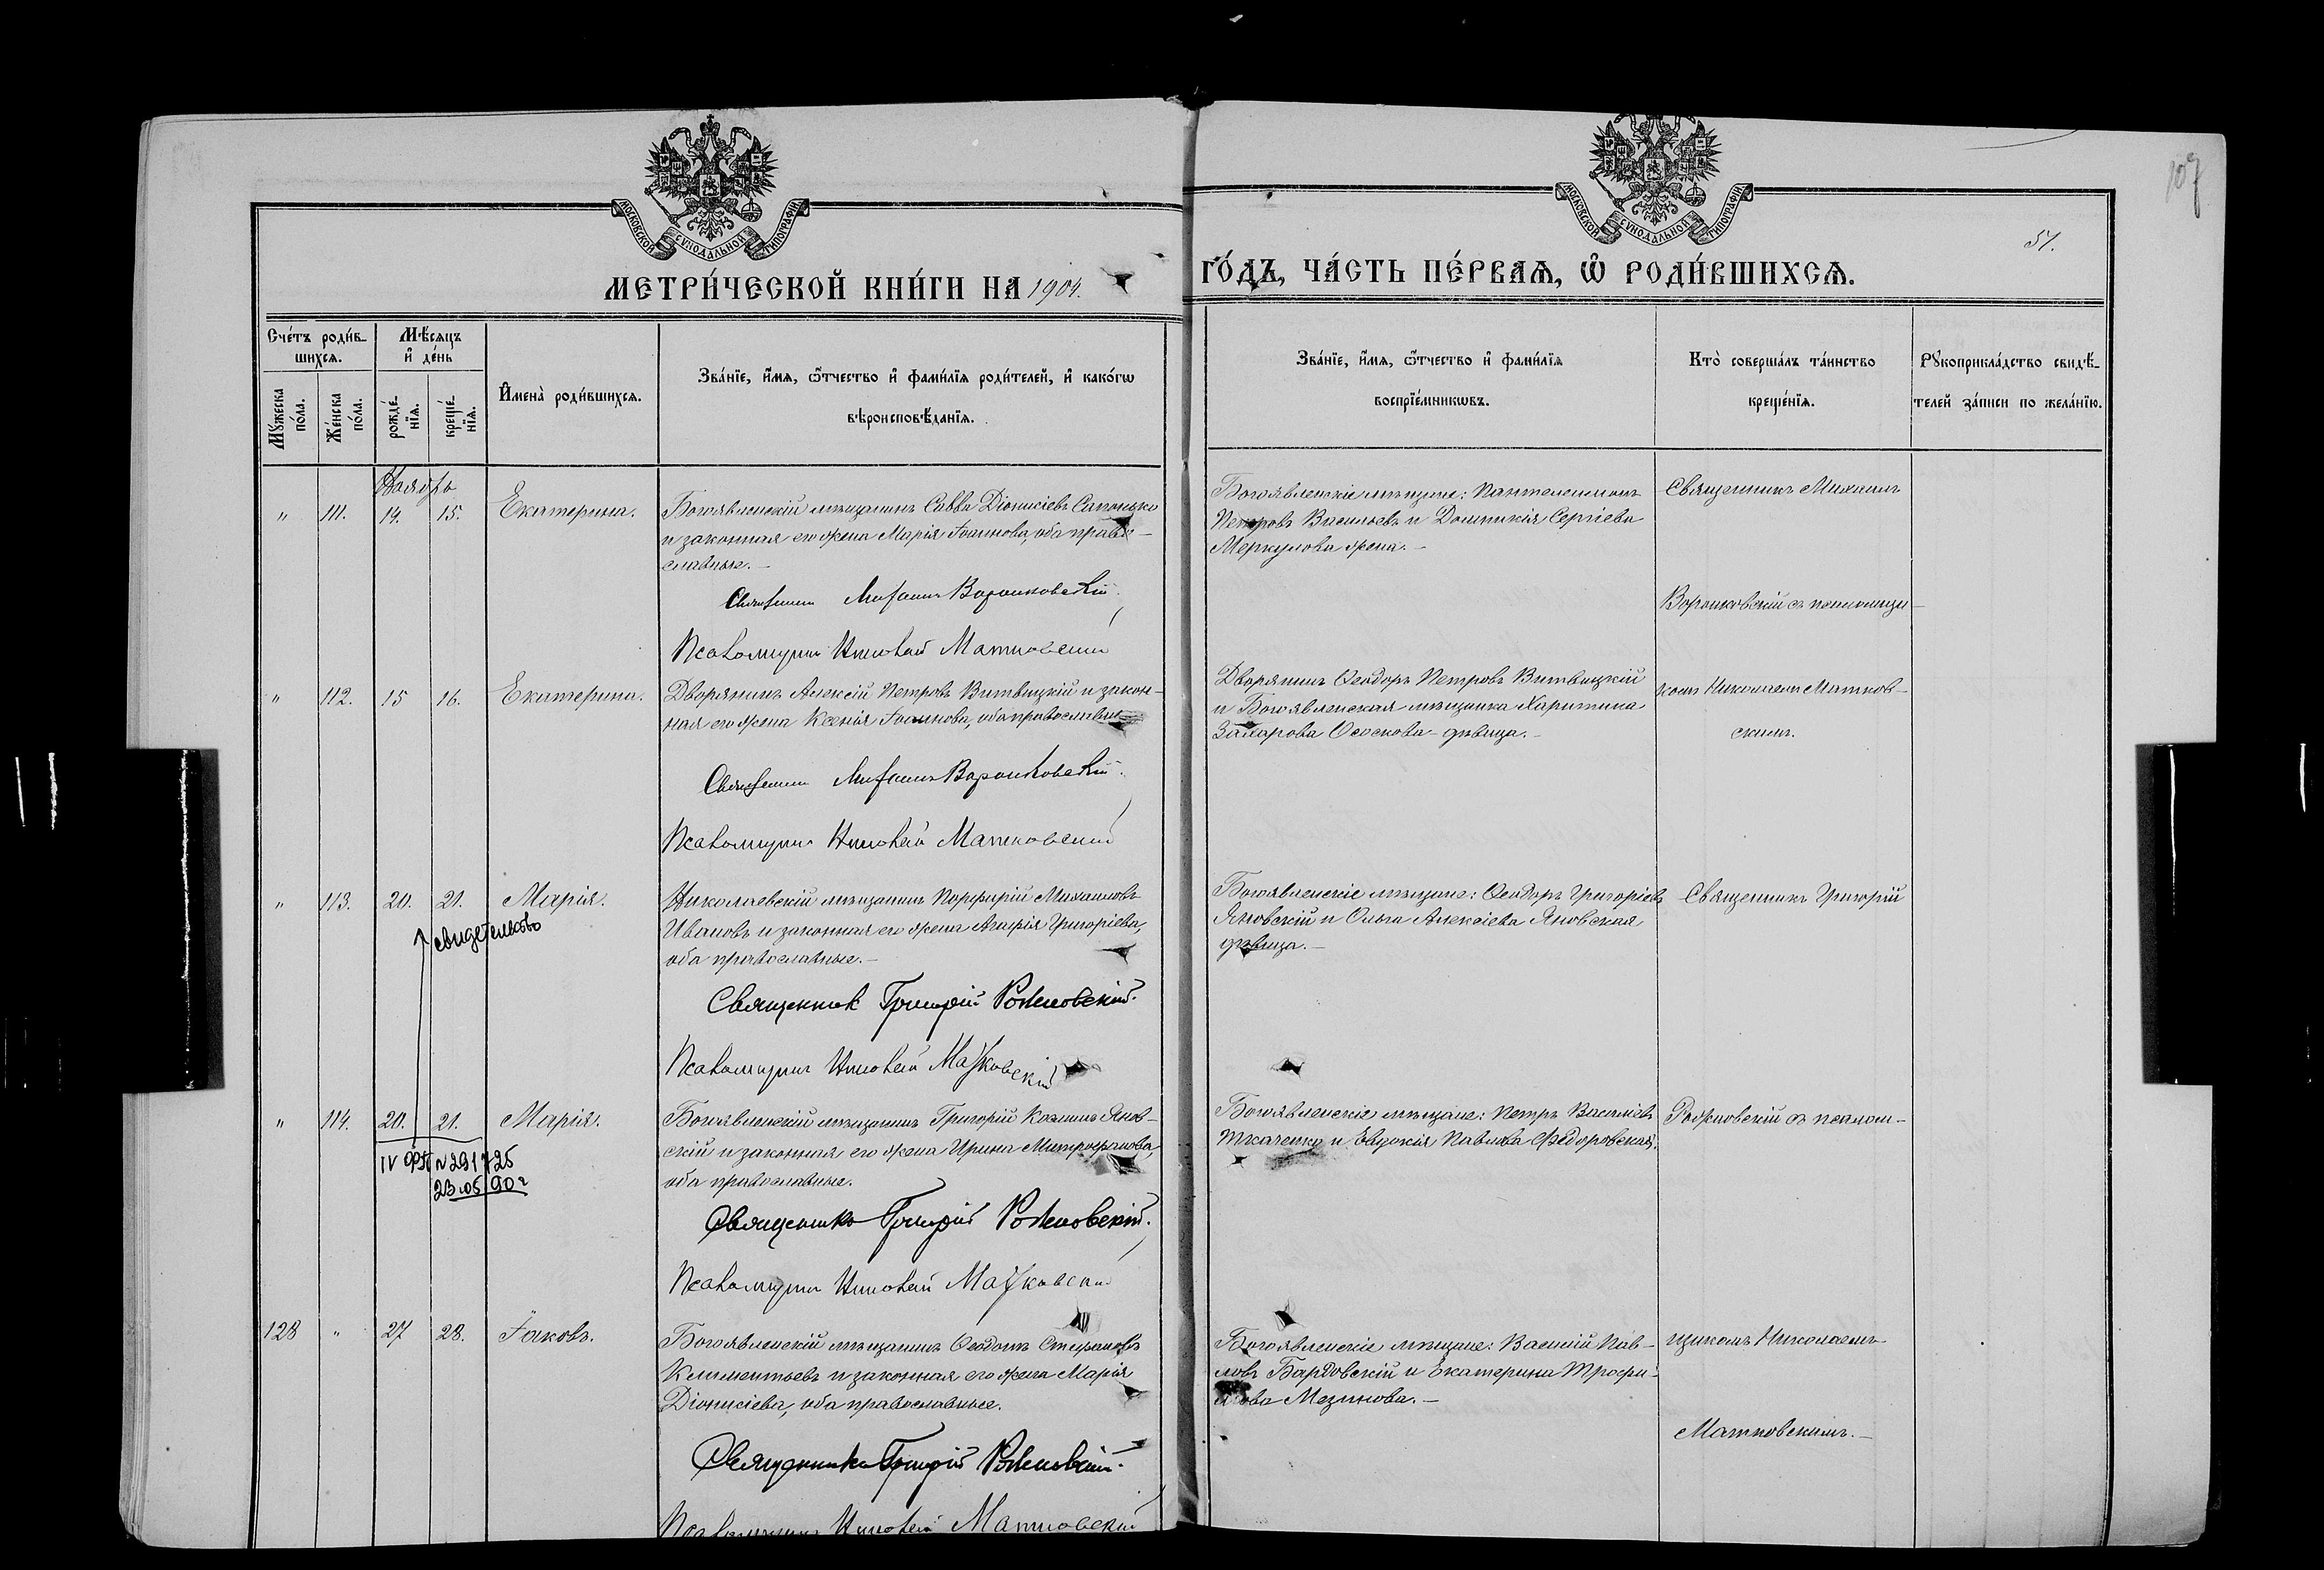 107
51.
МОСКОВСКОЙ СУНОДАЛЬНОЙ ТИПОГРАФІИ
МОСКОВСКОЙ СУНОДАЛЬНОЙ ТИПОГРАФІИ
МЕТРИ́ЧЕСКОЙ КНИ́ГИ НА 1904.
ГО́ДЪ, ЧА́СТЬ ПЕ́РВАѦ, Ѡ҆ РОДИ́ВШИХСѦ.
Сче́тъ роди́в-
шихсѧ.
Мꙋ́жеска по́ла.
Же́нска по́ла.
Мѣ́сѧцъ
и҆ де́нь
рожде́-нїѧ.
креще́-нїѧ.
И҆мена̀ роди́вшихсѧ.
Зва́нїе, и҆́мѧ, ѻ҆́тчество и҆ фами́лїѧ роди́телей, и҆ како́гѡ
вѣроисповѣ́данїѧ.
Зва́нїе, и҆́мѧ, ѻ҆́тчество и҆ фами́лїѧ
воспрїе́мникѡвъ.
Кто̀ соверша́лъ та́инство
креще́нїѧ.
Рꙋкоприкла́дство свидѣ́-
телей за́писи по жела́нїю.
Ноябрь
" 111. 14. 15. Екатерина.
Богоявленскій мѣщанинъ Савва Діонисіевъ Сапонько
и законная его жена Марія Іоаннова, оба право-
славные.-
Священникъ Михаилъ Воронковскій.
Псаломщикъ Николай Матковскій
Богоявленскіе мѣщане: Пантелеимонъ
Петровъ Васильевъ и Домникія Сергіева
Меркулова жена.-
Священникъ Михаилъ
Воронковскій съ псаломщи-
" 112. 15 16. Екатерина.
Дворянинъ Алексій Петровъ Витвицкій и закон-
ная его жена Ксенія Іоаннова, оба православные
Священникъ Михаилъ Воронковскій.
Псаломщикъ Николай Матковскій
Дворянинъ Ѳеодоръ Петровъ Витвицкій
и Богоявленская мѣщанка Харитина
Захарова Ососкова-дѣвица.-
комъ Николаемъ Матков-
скимъ.
" 113. 20. 21. Марія.
свидетельство
Николаевскій мѣщанинъ Порфирій Михаиловъ
Ивановъ и законная его жена Агафія Григоріева,
оба православные.-
Священник Григорій Рожновскій.
Псаломщикъ Николай Матковскій
Богоявленскіе мѣщане: Ѳеодоръ Григоріевъ
Яновскій и Ольга Алексіева Яновская
дѣвица.-
Священникъ Григорій
" 114. 20. 21. Марія.
N 291725
23.05.90г
Богоявленскій мѣщанинъ Григорій Козминъ Янов-
скій и законная его жена Ирина Митрофанова,
оба православные.
Священникъ Григорій Рожновскій.
Псаломщикъ Николай Матковскій
Богоявленскіе мѣщане: Петръ Василіевъ
Ткаченко и Евдокія Павлова Федоровская.
Рожновскій съ псалом-
128 " 27 28. Іаковъ.
Богоявленскій мѣщанинъ Ѳеодотъ Стефановъ
Климентьевъ и законная его жена Марія
Діонисіева, оба православные.
Священникъ Григорій Рожновскій.
Псаломщикъ Николай Матковскій
Богоявленскіе мѣщане: Василій Пав-
ловъ Бардовскій и Екатерина Трофи-
мова Мезинова.-
щикомъ Николаемъ
Матковскимъ.-